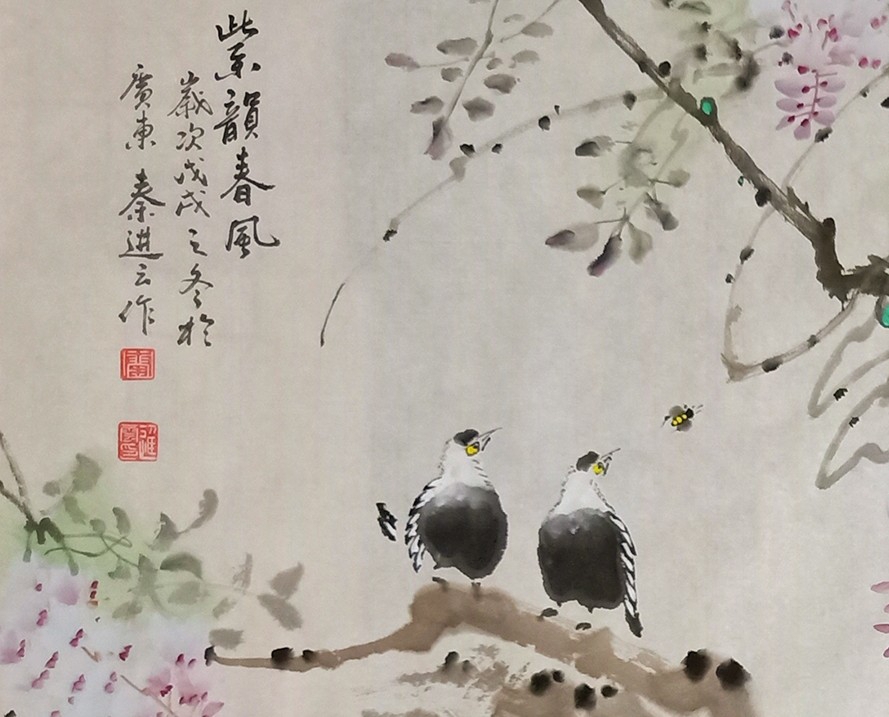 紫韻春風
歲次戊戌之冬於
廣東 秦進云作